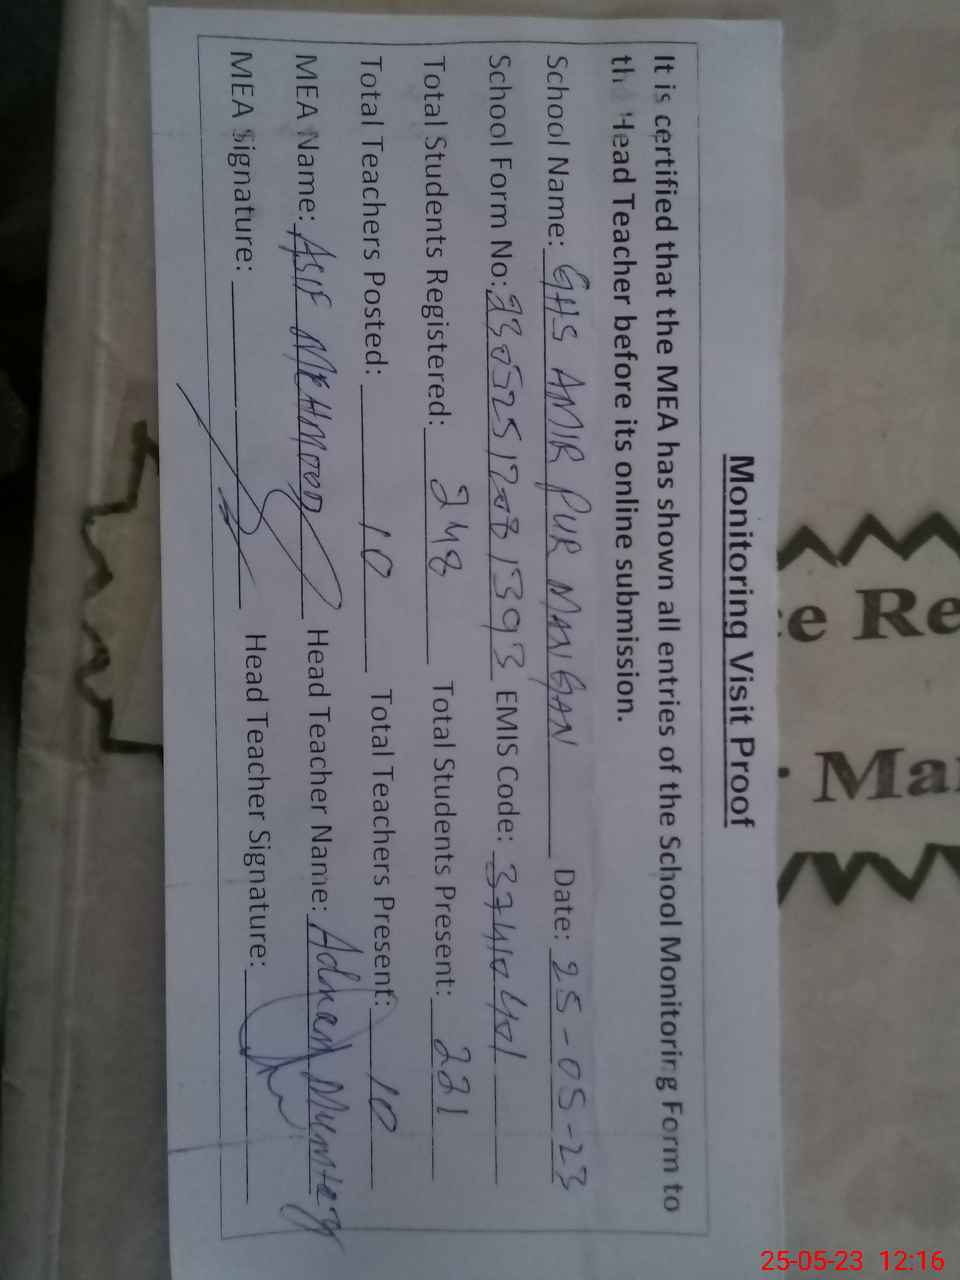 Monitoring Visit Proof
It is certified that the MEA has shown all entries of the School Monitoring Form to
the Head Teacher before its online submission.
School Name: GHS AMIR PUR MANGAN Date: 25-05-23
School Form No: 23052517081393 EMIS Code: 37410401
Total Students Registered: 248 Total Students Present: 221
Total Teachers Posted: 10 Total Teachers Present: 10
MEA Name: ASIF MEHMOOD Head Teacher Name: Adnan Mumtaz
MEA Signature: Head Teacher Signature:
e Re
Ma
25-05-23 12:16